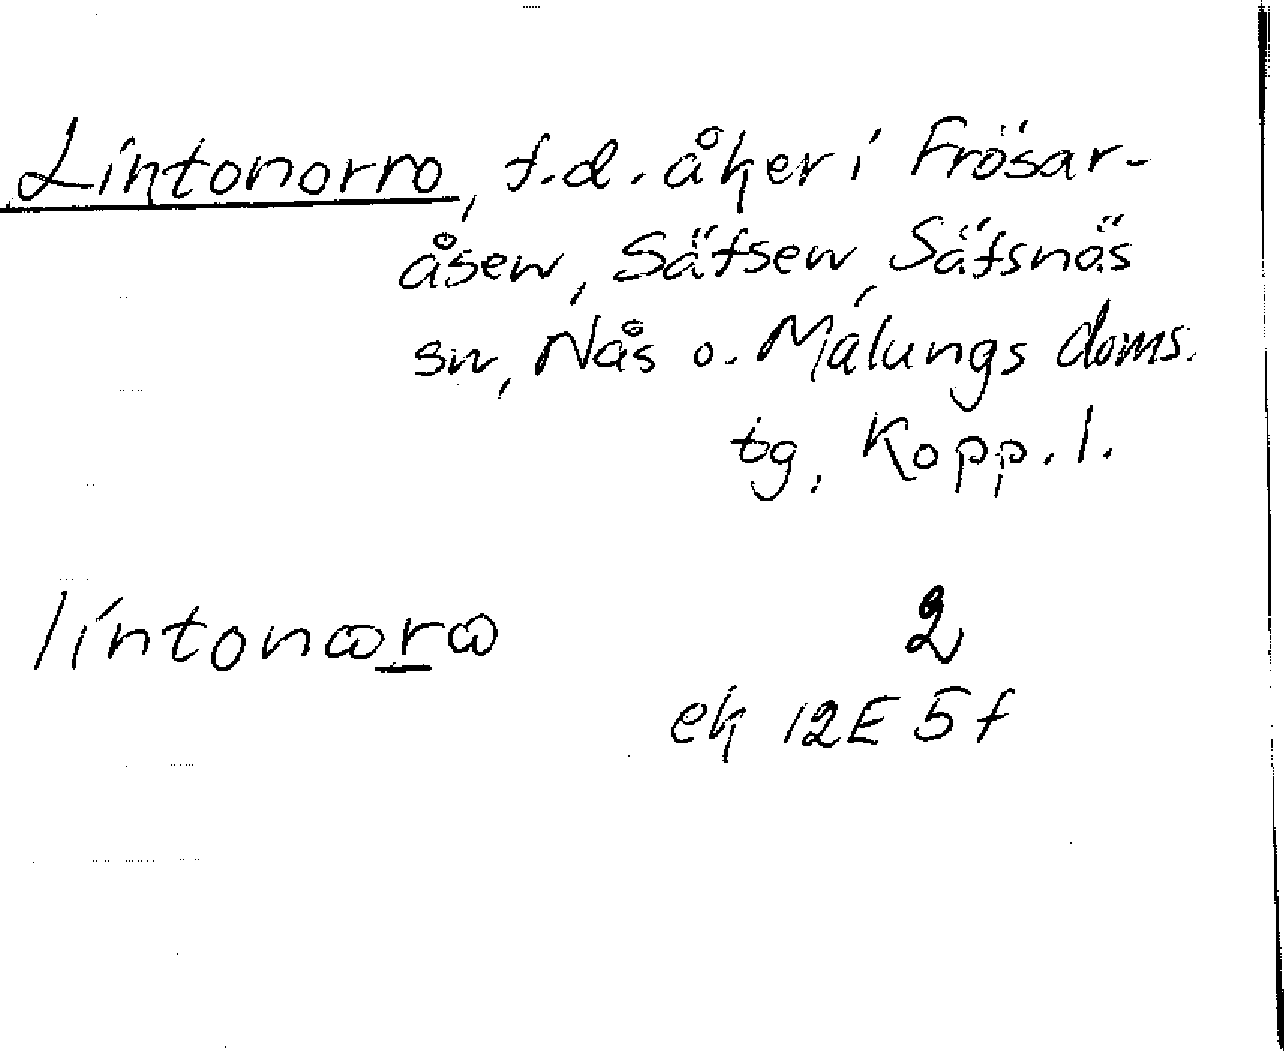 Lintonorro, f.d. åker i Frösar-
åsen, Säfsen, Säfsnäs
sn, Nås o. Malungs doms.
tg, Kopp. l.
lintonꞷrꞷ
2
ek 12E 5f